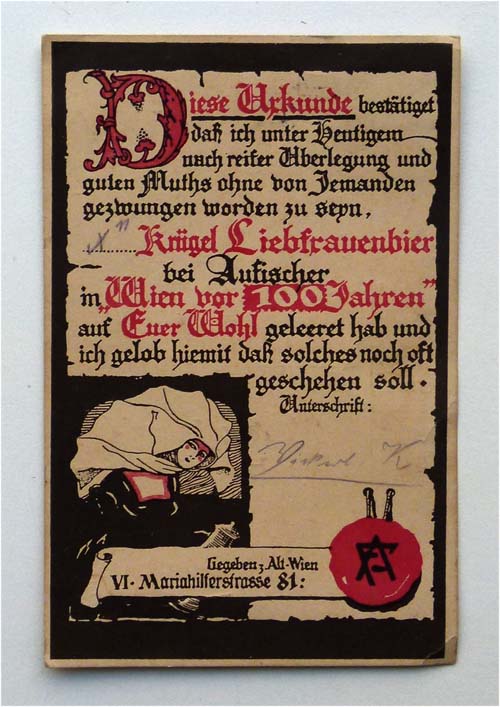 Diese Urkunde bestätiget
daß ich unter Heutigem
nach reifer Überlegung und
guten Muths ohne von Jemanden
gezwungen worden zu seyn,
Krügel Liebfrauenbier
bei Aufischer
in „Wien vor 100 Jahren"
auf „Euer Wohl geleeret hab und
ich gelob hiemit daß solches noch oft
geschehen soll.
Unterschrift:
K
Gegeben z. Alt-Wien
VI. Mariahilferstrasse 81: